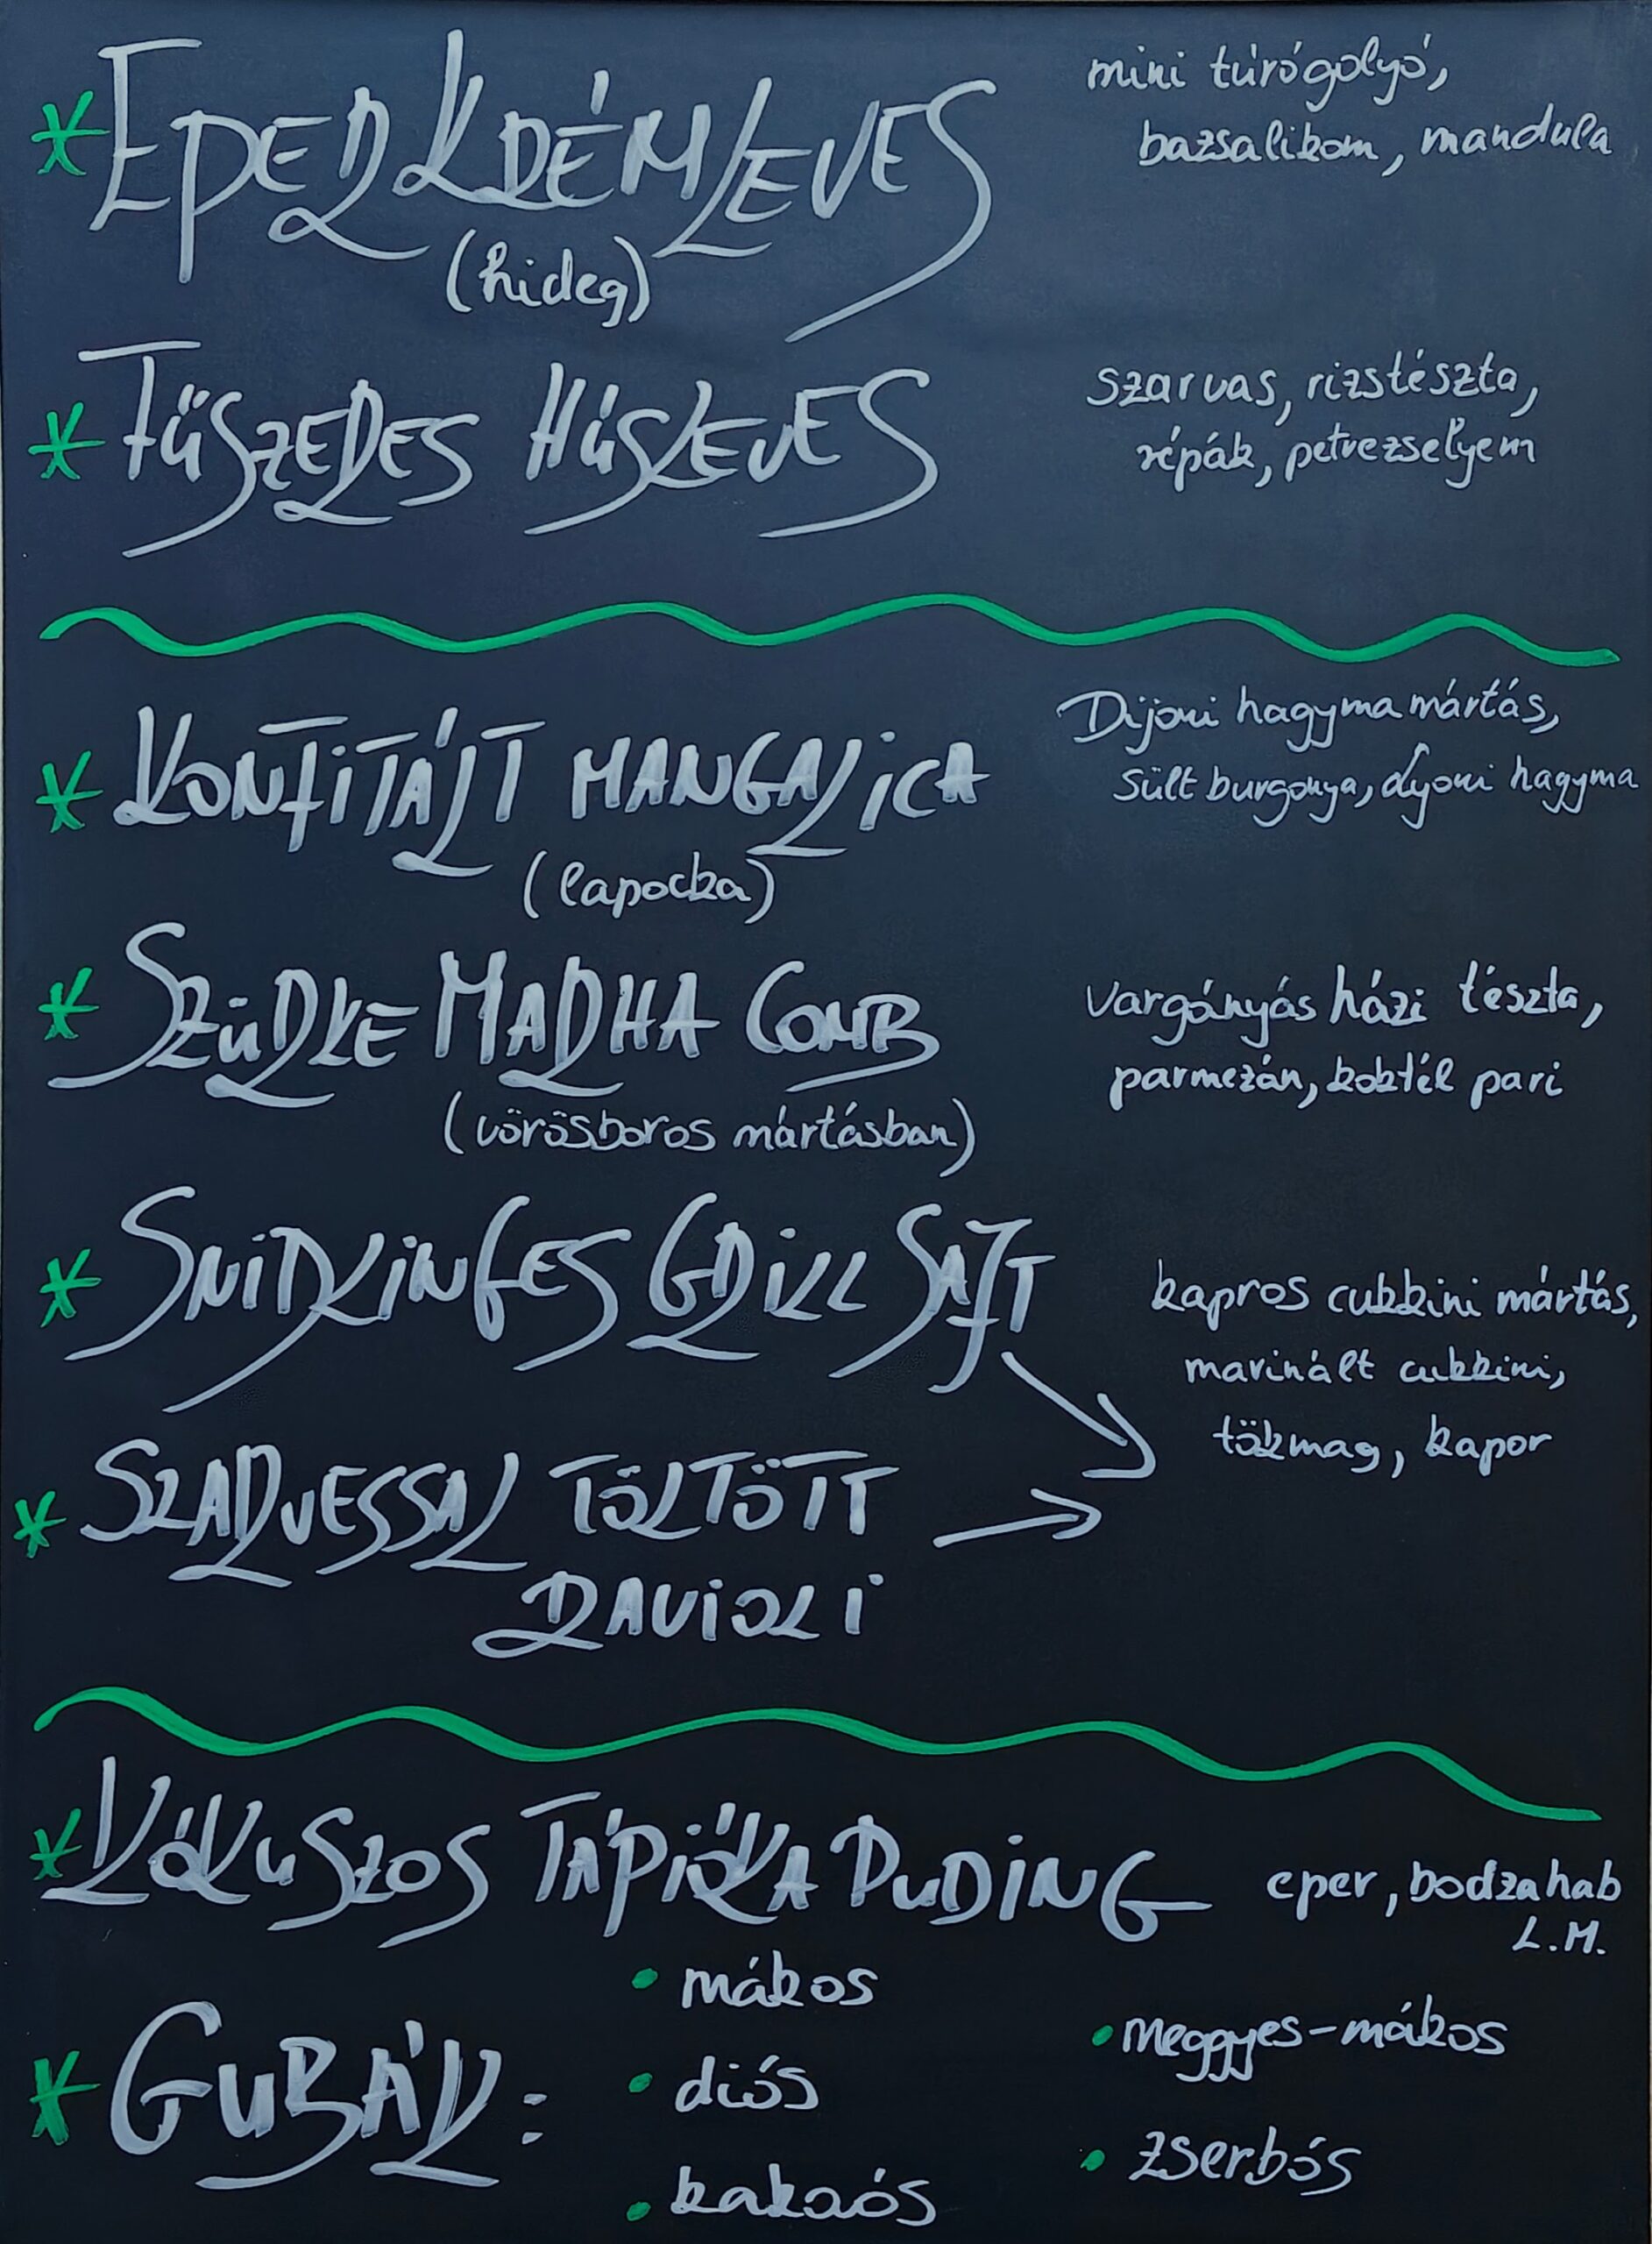 * EPERKRÉMLEVES
(hideg)
mini túrógolyó,
bazsalikom, mandula
* FŰSZERES HÚSLEVES
szarvas, rizstészta,
répák, petrezselyem
* KONFITÁLT MANGALICA
(lapocka)
Dijoni hagyma mártás,
sült burgonya, dijoni hagyma
* SZÜRKE MARHA COMB
(vörösboros mártásban)
vargányás házi tészta,
parmezán, koktél pari
* SNIDLINGES GRILL SAJT
kapros cukkini mártás,
marinált cukkini,
tökmag, kapor
* SZARVASSAL TÖLTÖTT
RAVIOLI
* KÓKUSZOS TÁPIÓKA PUDING
eper, bodzahab
L.M.
* GUBÁK:
• mákos
• diós
• kakaós
• meggyes-mákos
• zserbós